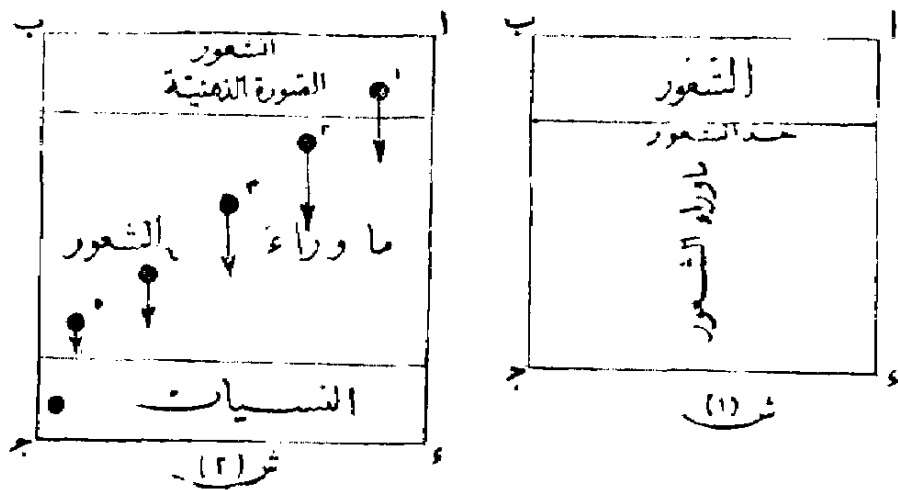 ا
ب
الشعور
حد الشعور
ما وراء الشعور
ء
جـ
ش (١)
ا
ب
الشعور
الصورة الذهنية
١
٢
٣
ما وراء الشعور
٤
٥
النسيان
ء
جـ
ش (٢)